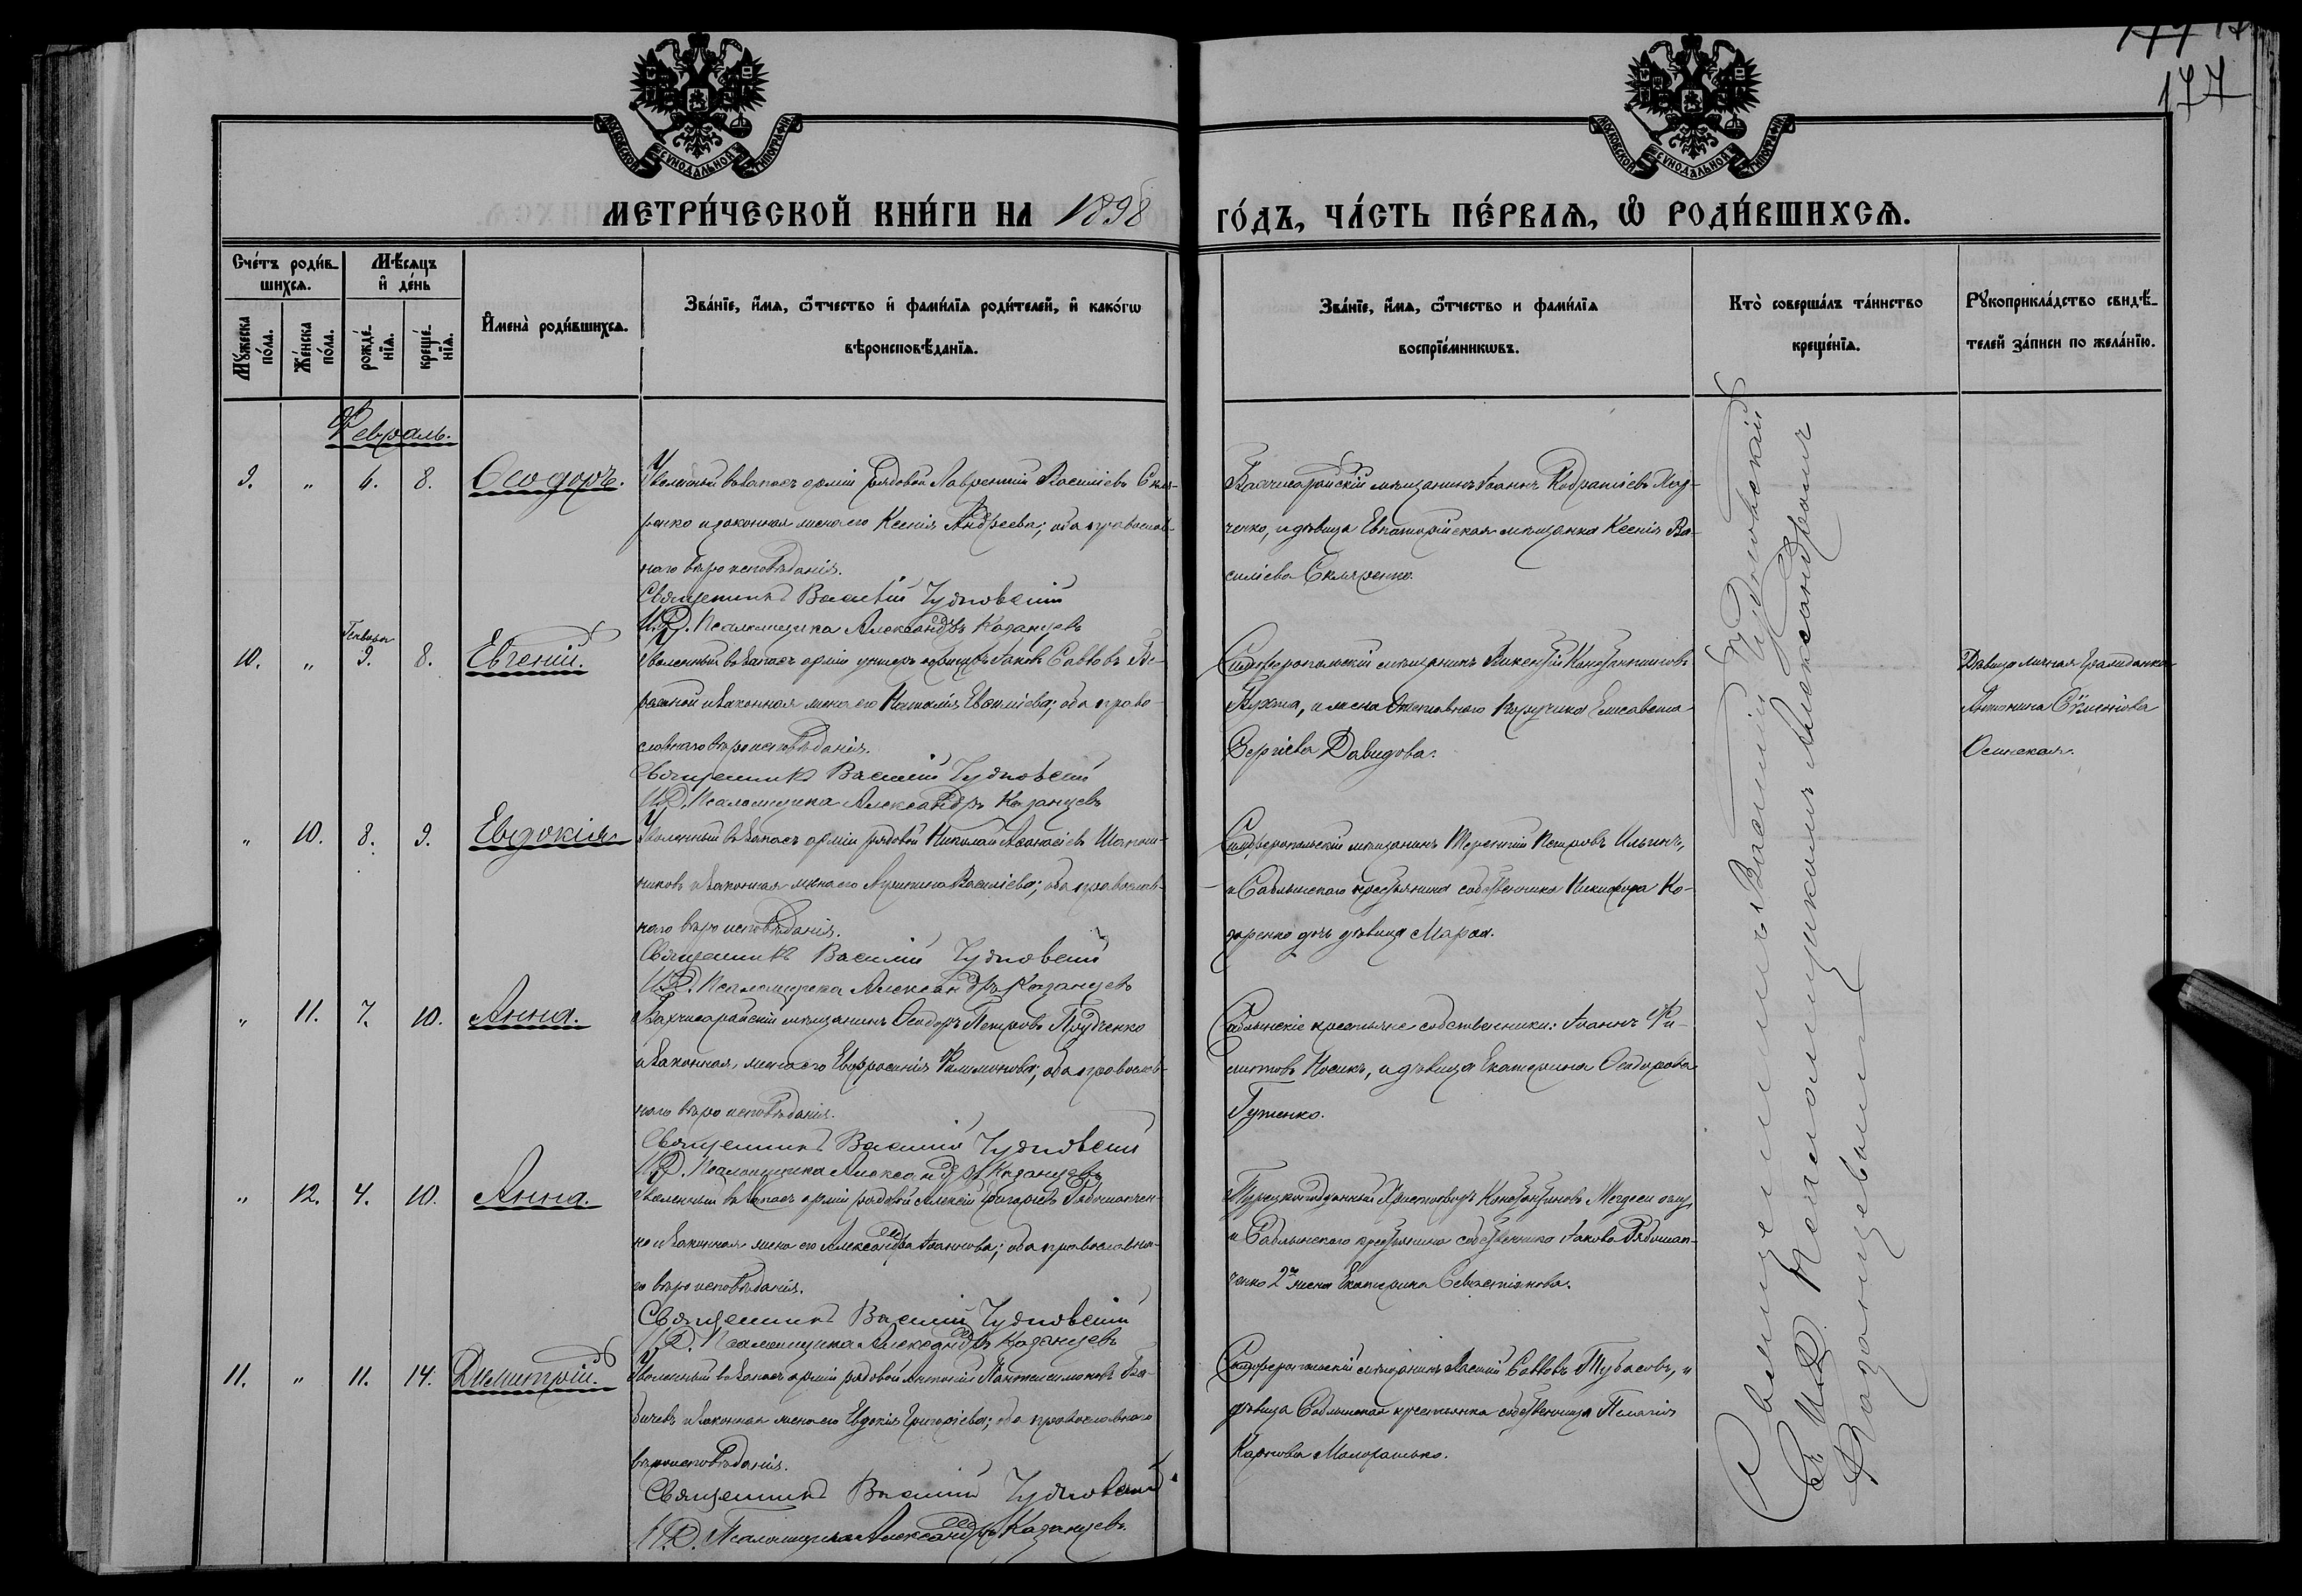 177
МОСКОВСКОЙ СѴНОДАЛЬНОЙ ТИПОГРАФІИ
МОСКОВСКОЙ СѴНОДАЛЬНОЙ ТИПОГРАФІИ
МЕТРИ́ЧЕСКОЙ КНИ́ГИ НА 1898 ГО́ДЪ, ЧА́СТЬ ПЕ́РВАѦ, Ѽ РОДИ́ВШИХСѦ.
Сче́тъ роди́в-
шихсѧ.
Мꙋ́жеска по́ла.
Же́нска по́ла.
Мѣ́сѧцъ и҆ де́нь
рожде́-нїѧ.
креще́-нїѧ.
И҆мена̀ роди́вшихсѧ.
Зва́нїе, и҆́мѧ, ѻ҆́тчество и҆ фами́лїѧ роди́телей, и҆ како́гѡ
вѣроисповѣ́данїѧ.
Зва́нїе, и҆́мѧ, ѻ҆́тчество и фами́лїѧ
воспрїе́мникѡвъ.
Кто̀ соверша́лъ та́инство
креще́нїѧ.
Рꙋкоприкла́дство свидѣ́-
телей за́писи по жела́нїю.
Февраль.
9. " 6. 8. Ѳеодоръ.
Уволенный въ запасъ арміи рядовой Лаврентій Василіевъ Скля-
ренко и законная жена его Ксенія Андреева; оба православ-
наго вѣроисповѣданія.
Священникъ Василій Чудновскій
И.Д. Псаломщика Александръ Казанцевъ
Бахчисарайскій мѣщанинъ Іоаннъ
ченко, и дѣвица Евпаторійская мѣщанка Ксенія Ва-
силіева Скляренко.
10. " Генваря 9. 8. Евгеній.
Уволенный въ запасъ арміи унтеръ офицеръ Іаковъ Савховъ
и законная жена его Наталія; оба право-
славнаго вѣроисповѣданія.
Священникъ Василій Чудновскій
И.Д. Псаломщика Александръ Казанцевъ
Симферопольскій мѣщанинъ Викентій Константиновъ
и жена отставного поручика Елисавета
Сергіева Давидова.
Дѣвица личная гражданка
Антонина Семенова
Осинская.
" 10. 8. 9. Евдокія
Уволенный въ запасъ арміи рядовой Николай Аѳанасіевъ Шапош-
никовъ и законная жена его Агрипина Василіева; оба православ-
наго вѣроисповѣданія.
Священникъ Василій Чудновскій
И.Д. Псаломщика Александръ Казанцевъ
Симферопольскій мѣщанинъ Терентій Петровъ Ильинъ,
и Саблынскаго крестьянина собственника Никифора Ко-
даренко дочь дѣвица Марѳа.
" 11. 7. 10. Анна.
Бахчисарайскій мѣщанинъ Ѳеодоръ Петровъ
и законная жена его Евфросинія Филимонова; оба православ-
наго вѣроисповѣданія.
Священникъ Василій Чудновскій
И.Д. Псаломщика Александръ Казанцевъ
Саблынскіе крестьяне собственники: Іоаннъ Фи-
Носикъ, и дѣвица Екатерина Ѳеодорова
Гуженко.
" 12. 4. 10. Анна.
Уволенный въ запасъ арміи рядовой Алексій Григорьевъ Рябошапчен-
ко и законная жена его Александра Іоаннова; оба православна-
го вѣроисповѣданія.
Священникъ Василій Чудновскій
И.Д. Псаломщика Александръ Казанцевъ
Турецкоподданный Христофоръ Константиновъ
и Саблынскаго крестьянина собственника Іакова Рябошап-
ченко 2я жена Екатерина Севастіанова.
11. " 11. 14. Димитрій.
Уволенный въ запасъ арміи рядовой Антоній Пантелеимоновъ Ба-
бичевъ и законная жена его Евдокія Григоріева; оба православнаго
вѣроисповѣданія.
Священникъ Василій Чудновскій
И.Д. Псаломщика Александръ Казанцевъ.
Симферопольскій мѣщанинъ Василій Савховъ Тубасовъ, и
дѣвица Саблынская крестьянка собственница Пелагія
Карпова
Священникъ Василій Чудновскій
съ И.Д. Псаломщикомъ Александромъ
Казанцевымъ